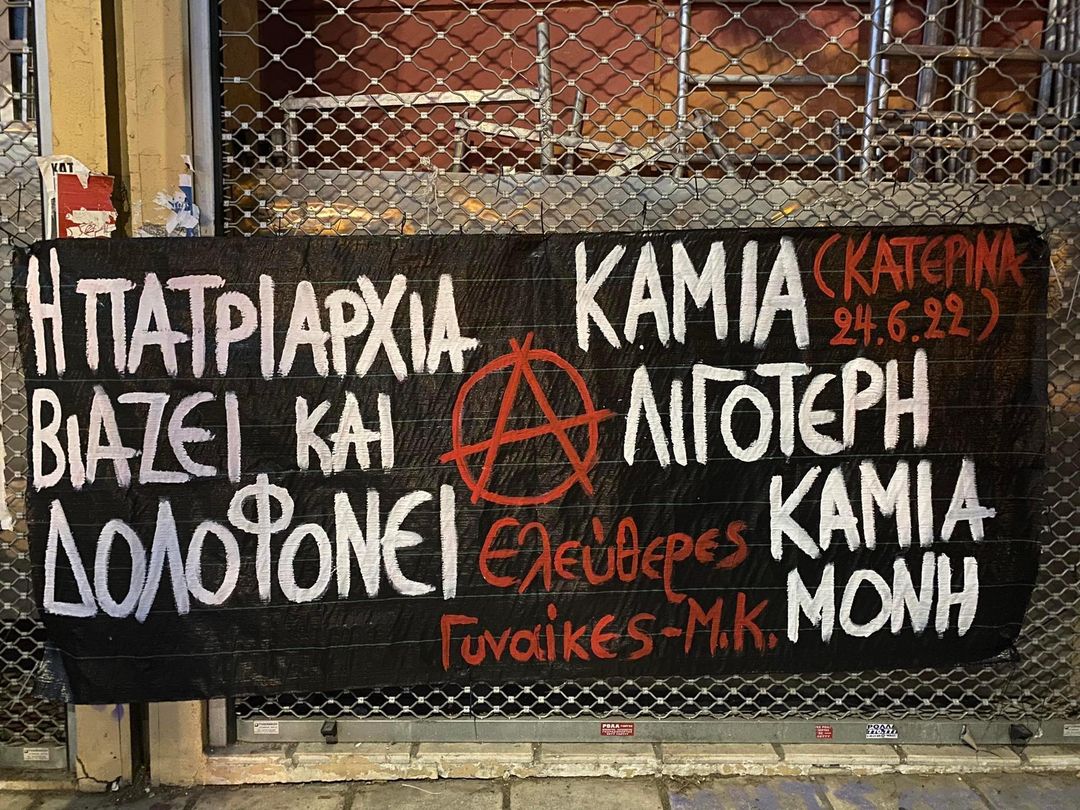 Η ΠΑΤΡΙΑΡΧΙΑ
ΒΙΑΖΕΙ ΚΑΙ
ΔΟΛΟΦΟΝΕΙ
ΚΑΜΙΑ
(ΚΑΤΕΡΙΝΑ
24.6.22)
ΛΙΓΟΤΕΡΗ
ΚΑΜΙΑ
ΜΟΝΗ
Ελεύθερες
Γυναίκες-Μ.Κ.
ΚΑΤ
ΡΟΛΑ